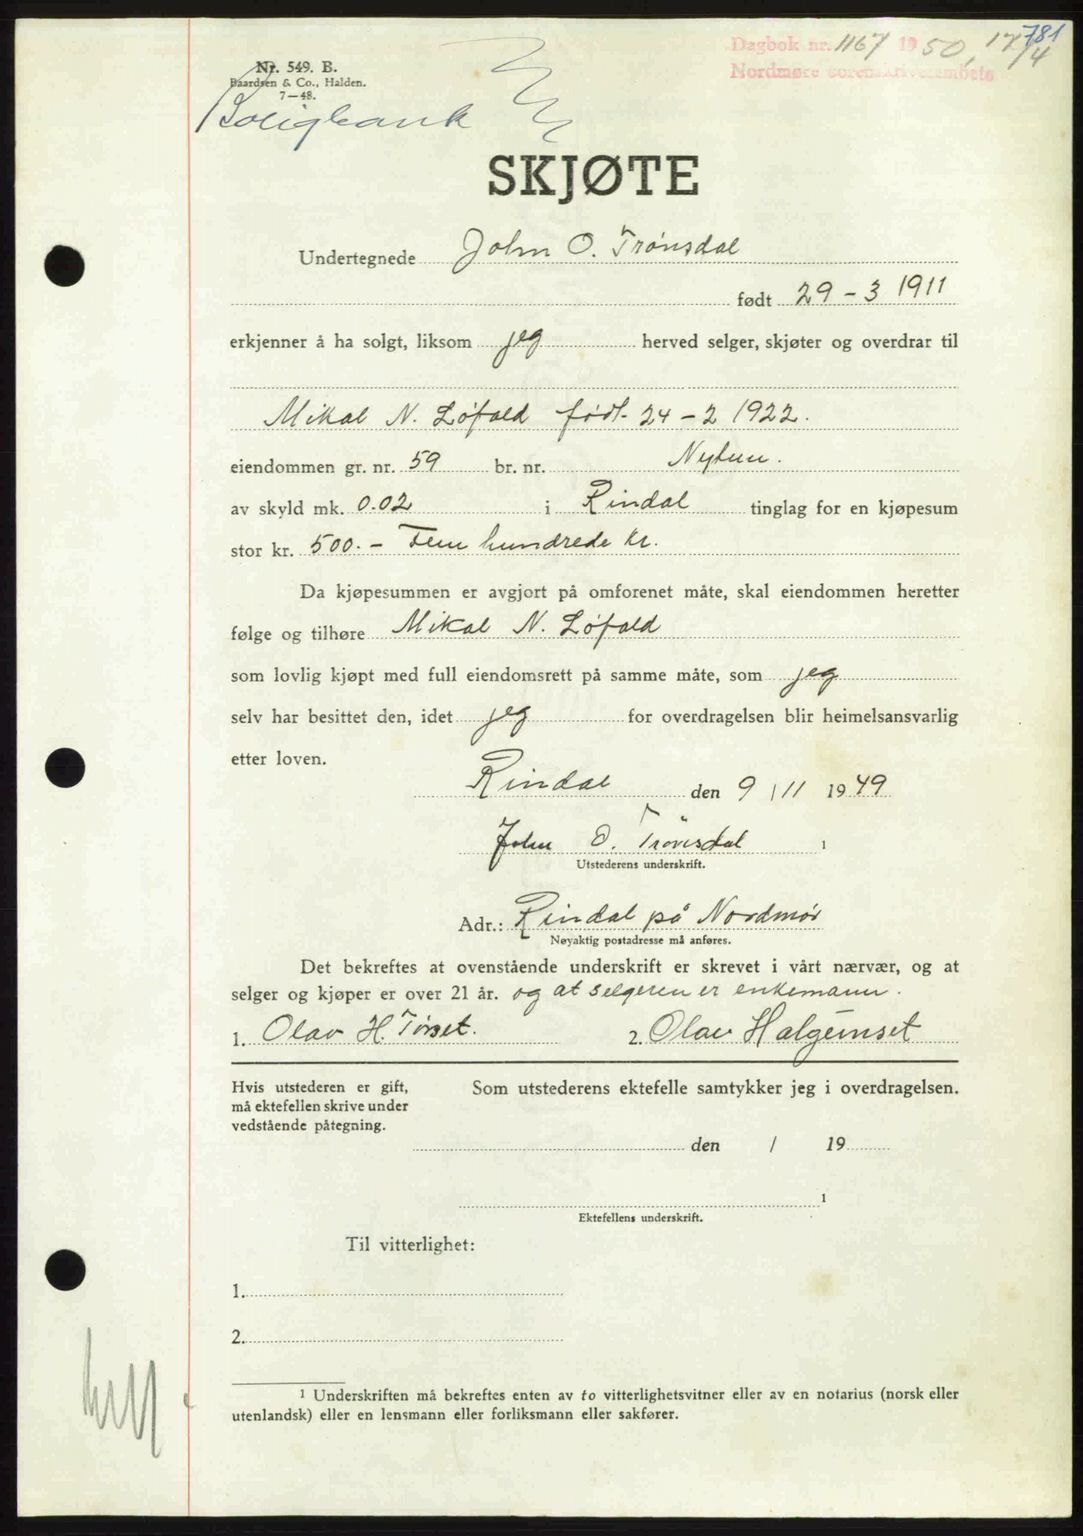 781
Dagbok nr. 1167 1950, 17/4
Nordmøre sorenskriverembete
Nr. 549. B.
Baardsen & Co., Halden.
7—48.
Boligbank
SKJØTE
Undertegnede John O. Trønsdal
født 29 - 3 1911
erkjenner å ha solgt, liksom jeg herved selger, skjøter og overdrar til
Mikal N. Løfald født 24 - 2 1922.
eiendommen gr. nr. 59 br. nr. Nytun.
av skyld mk. 0.02 i Rindal tinglag for en kjøpesum
stor kr. 500.- Fem hundrede kr.
Da kjøpesummen er avgjort på omforenet måte, skal eiendommen heretter
følge og tilhøre Mikal N. Løfald
som lovlig kjøpt med full eiendomsrett på samme måte, som jeg
selv har besittet den, idet jeg for overdragelsen blir heimelsansvarlig
etter loven.
Rindal den 9 / 11 1949
John O. Trønsdal 1
Utstederens underskrift.
Adr.: Rindal på Nordmør
Nøyaktig postadresse må anføres.
Det bekreftes at ovenstående underskrift er skrevet i vårt nærvær, og at
selger og kjøper er over 21 år. og at selgeren er enkemann.
1. Olav H. Tørset. 2. Olav Halgeinset
Hvis utstederen er gift,
må ektefellen skrive under
vedstående påtegning.
Som utstederens ektefelle samtykker jeg i overdragelsen.
den / 19
1
Ektefellens underskrift.
Til vitterlighet:
1.
2.
1 Underskriften må bekreftes enten av to vitterlighetsvitner eller av en notarius (norsk eller
utenlandsk) eller en lensmann eller forliksmann eller sakfører.